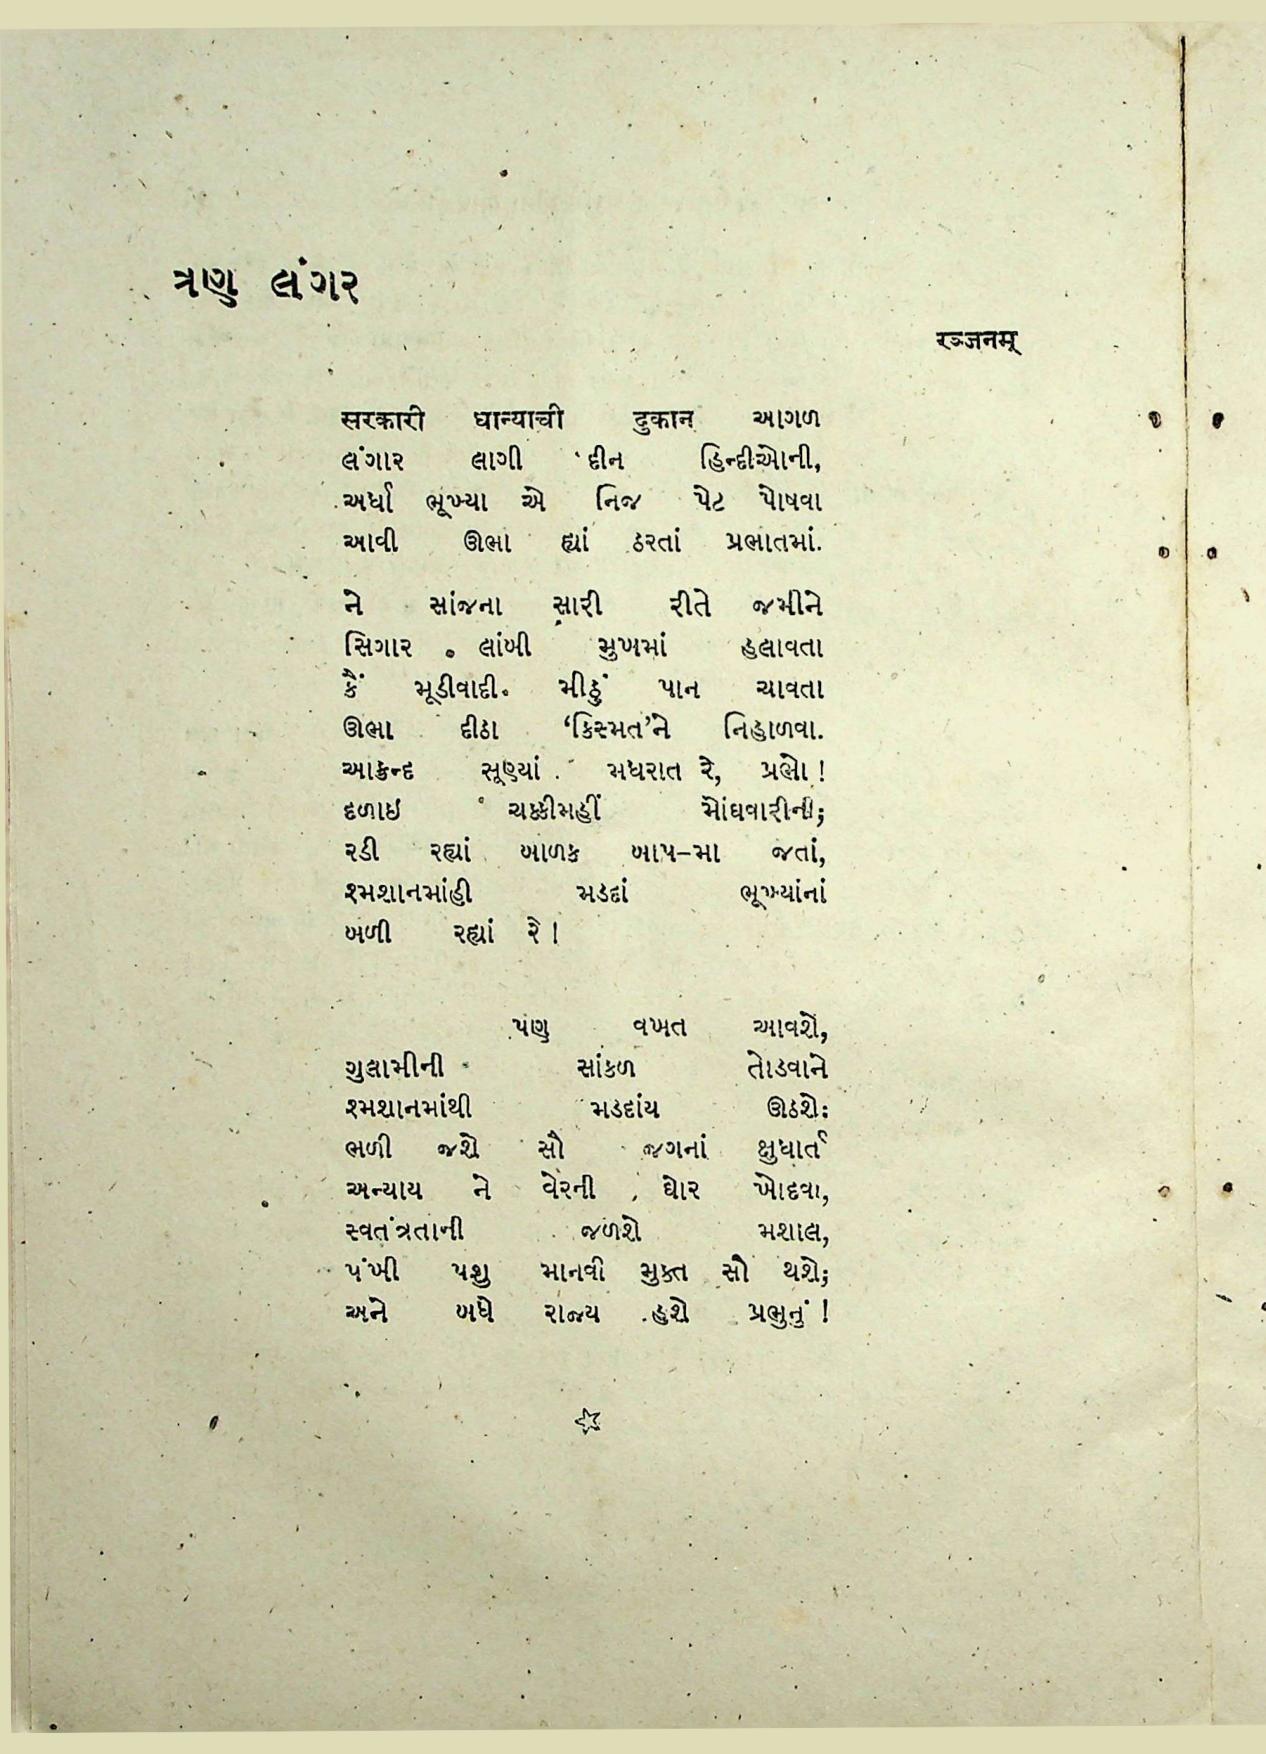 ત્રણ લંગર
રઞ્જનમ્
सरकारी धान्याची दुकान આગળ
લંગાર લાગી દીન હિન્દીઓની,
અર્ધાં ભૂખ્યા એ નિજ પેટ પોષવા
આવી ઊભા હ્યાં ઠરતાં પ્રભાતમાં.
ને સાંજના સારી રીતે જમીને
સિગાર લાંબી મુખમાં હલાવતા
કૈં મૂડીવાદી મીઠું પાન ચાવતા
ઊભા દીઠા ‘કિસ્મત’ને નિહાળવા.
આક્રન્દ સૂણ્યાં મધરાત રે, પ્રભો!
દળાઇ ચક્કીમહીં મોંઘવારીની;
રડી રહ્યાં બાળક બાપ-મા જતાં,
શ્મશાનમાંહી મડદાં ભૂખ્યાંનાં
બળી રહ્યાં રે!
પણ વખત આવશે,
ગુલામીની સાંકળ તોડવાને
શ્મશાનમાંથી મડદાંય ઊઠશે:
ભળી જશે સૌ જગનાં ક્ષુધાર્ત
અન્યાય ને વેરની ઘોર ખોદવા,
સ્વતંત્રતાની જળશે મશાલ,
પંખી પશુ માનવી મુક્ત સૌ થશે;
અને બધે રાજ્ય હશે પ્રભુનું!